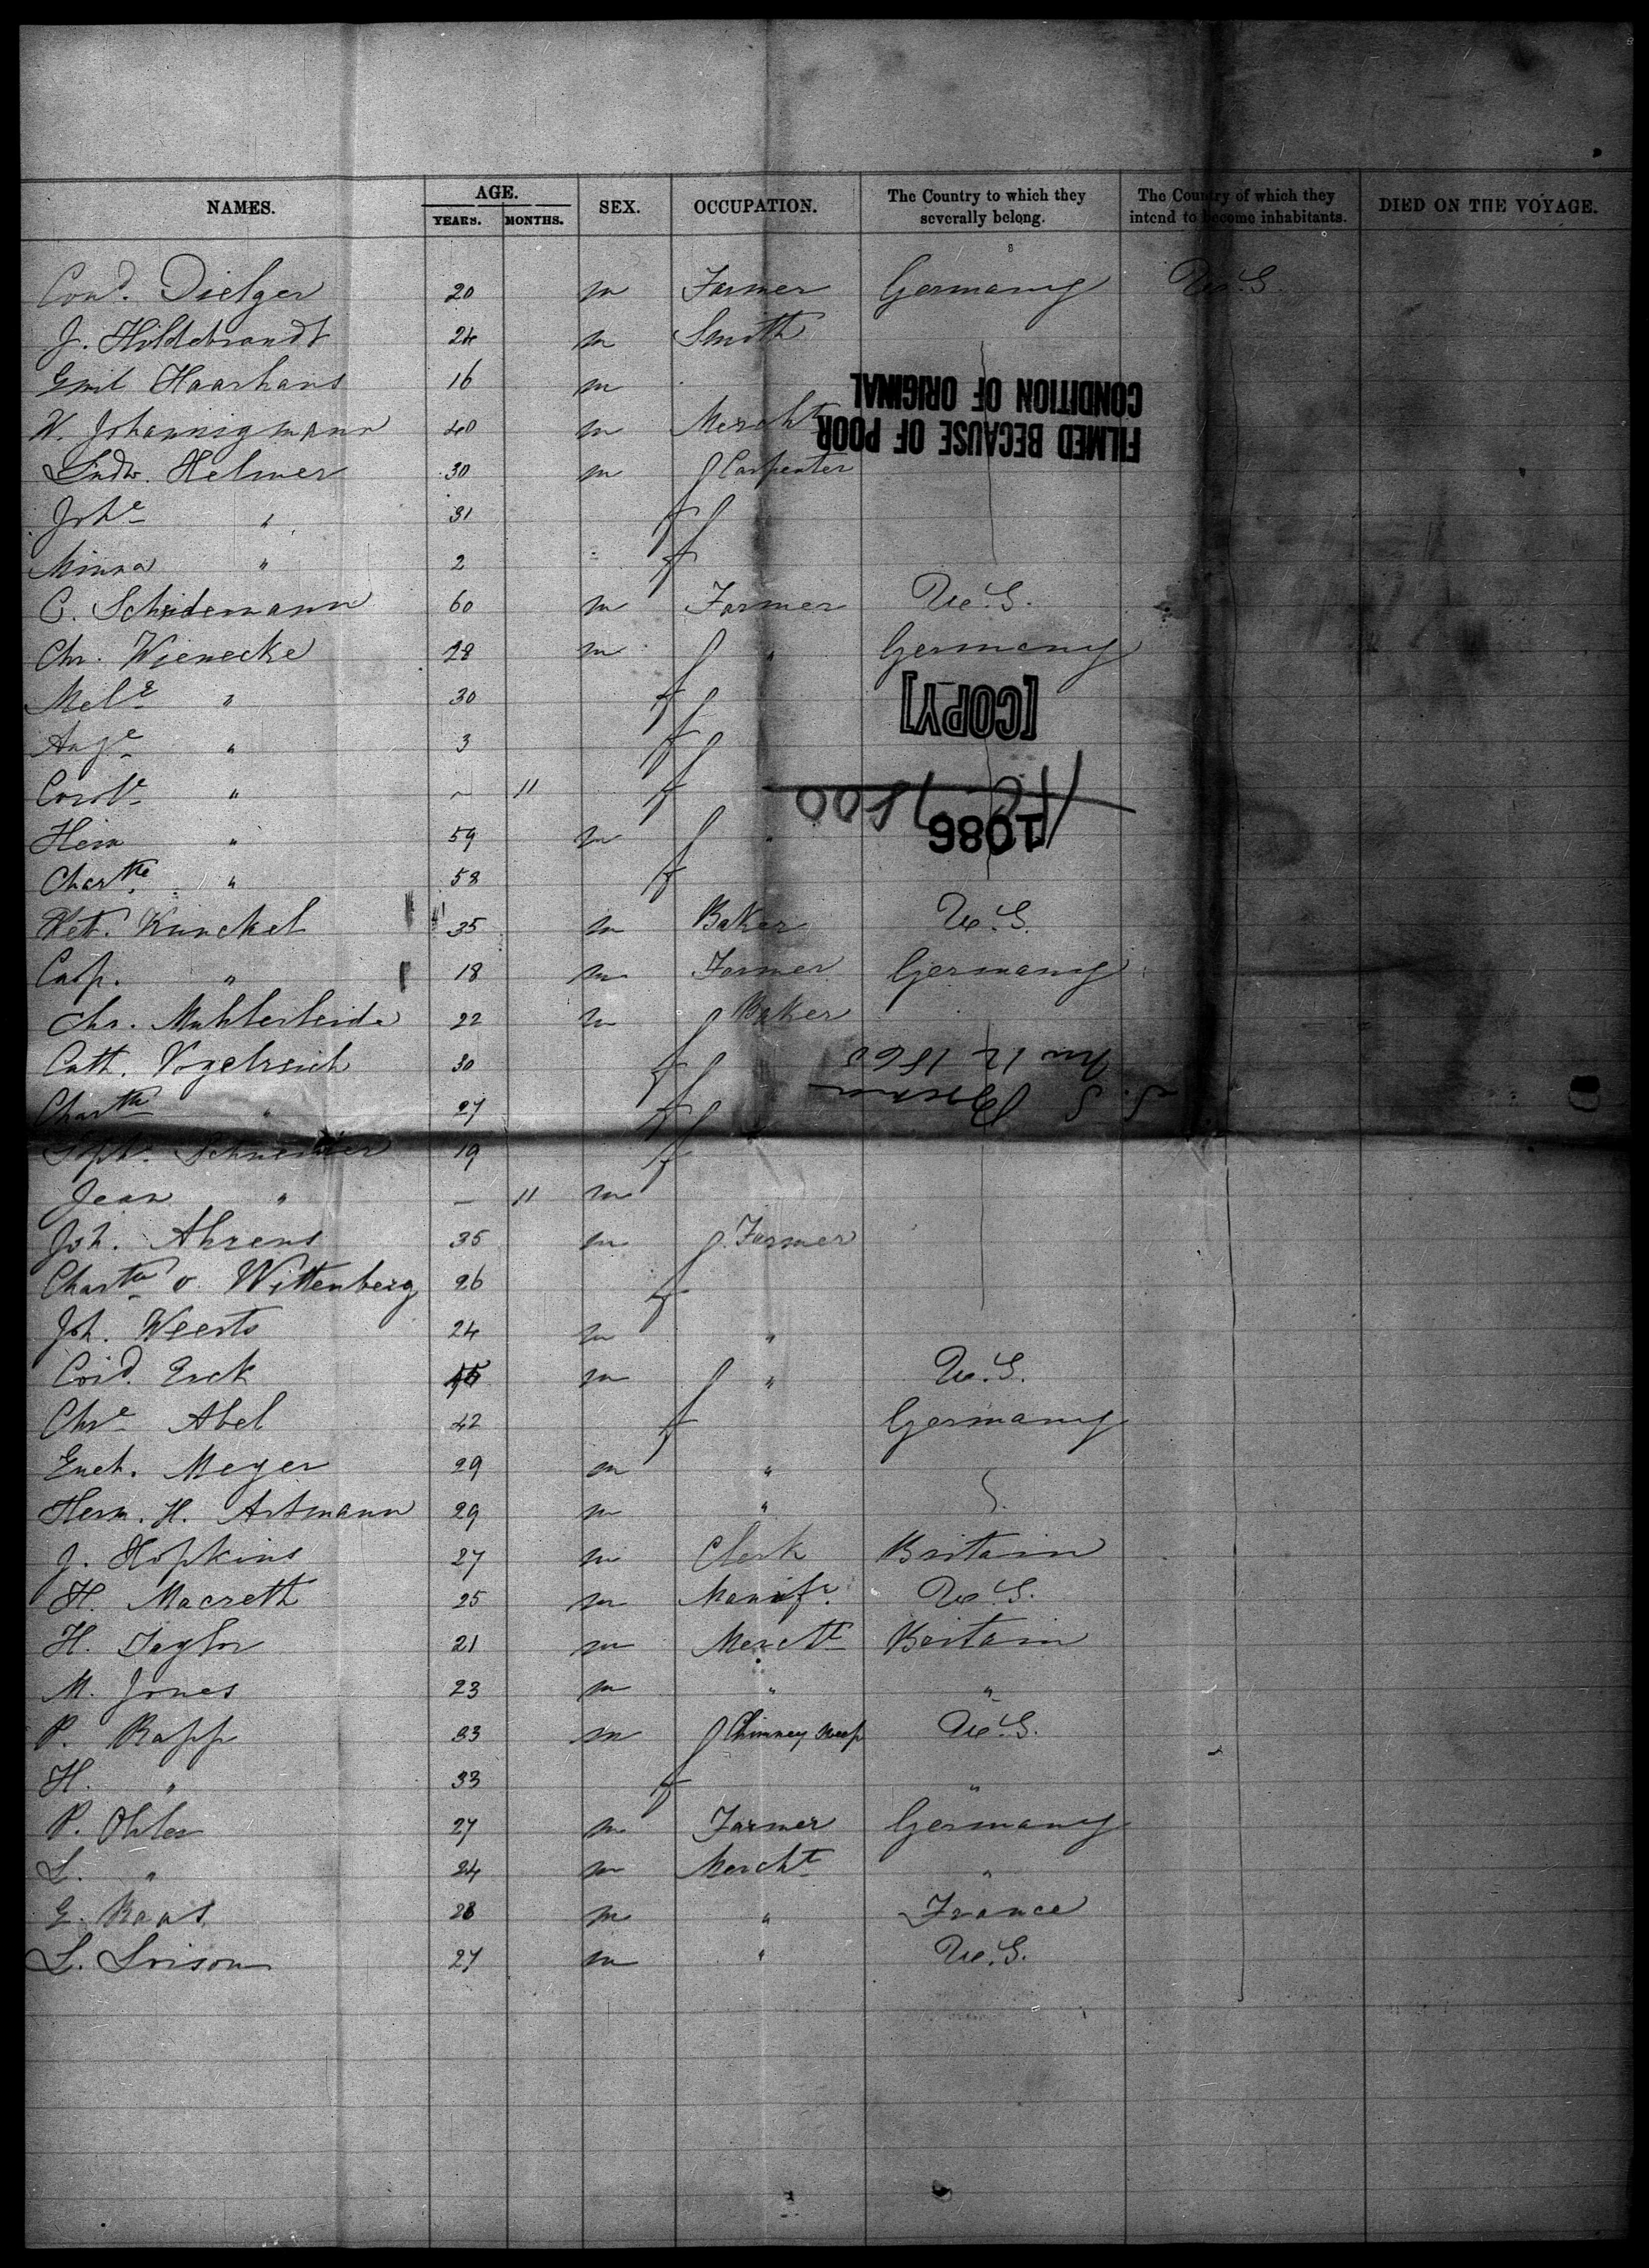 NAMES. AGE. SEX. OCCUPATION. The Country to which they severally belong. The Country of which they intend to become inhabitants. DIED ON THE VOYAGE.
YEARS. MONTHS.
Conᵈ. Dielger 20 m Farmer Germany U.S.
J. Hildebrandt 24 m Smith
Emil Haarhaus 16 m
CONDITION OF ORIGINAL
W. Johannigmann 40 m Mercht
FILMED BECAUSE OF POOR
Ludw. Helmer 30 m Carpenter
Joh^e " 31 f
Minna " 2 f
C. Scheidemann 60 m Farmer U.S.
Chr. Wienecke 28 m " Germany
Mel^e " 30 f
[COPY]
Aug^e " 3 f
Carol^e " ~ 11 f
Herm " 59 m "
1086
Char^tte " 58 f
Pet. Kunckel 35 m Baker U.S.
Casp. " 18 m Farmer Germany
Chr. Muhlerleide 22 m Baker
Cath. Vogelreich 30 f
Char^tte " 27 f
Soph. Schneider 19 f
Jean " — 11 m
Joh. Ahrens 35 m Farmer
Char^tte v. Wittenberg 26 f
Joh. Weerts 24 m "
Cord. Erck m " U.S.
Chr^e Abel 42 f Germany
Meyer 29 m "
Herm. H. Artmann 29 m "
J. Hopkins 27 m Clerk Britain
H. Macreth 25 m Manufr. U.S.
H. Taylor 21 m Mercht Britain
M. Jones 23 m " "
P. Rapp 33 m Chimney Sweep U.S.
H. " 33 f "
P. Ohler 27 m Farmer Germany
L. " 24 m Mercht "
E. Raas 28 m " France
L. Loison 27 m " U.S.